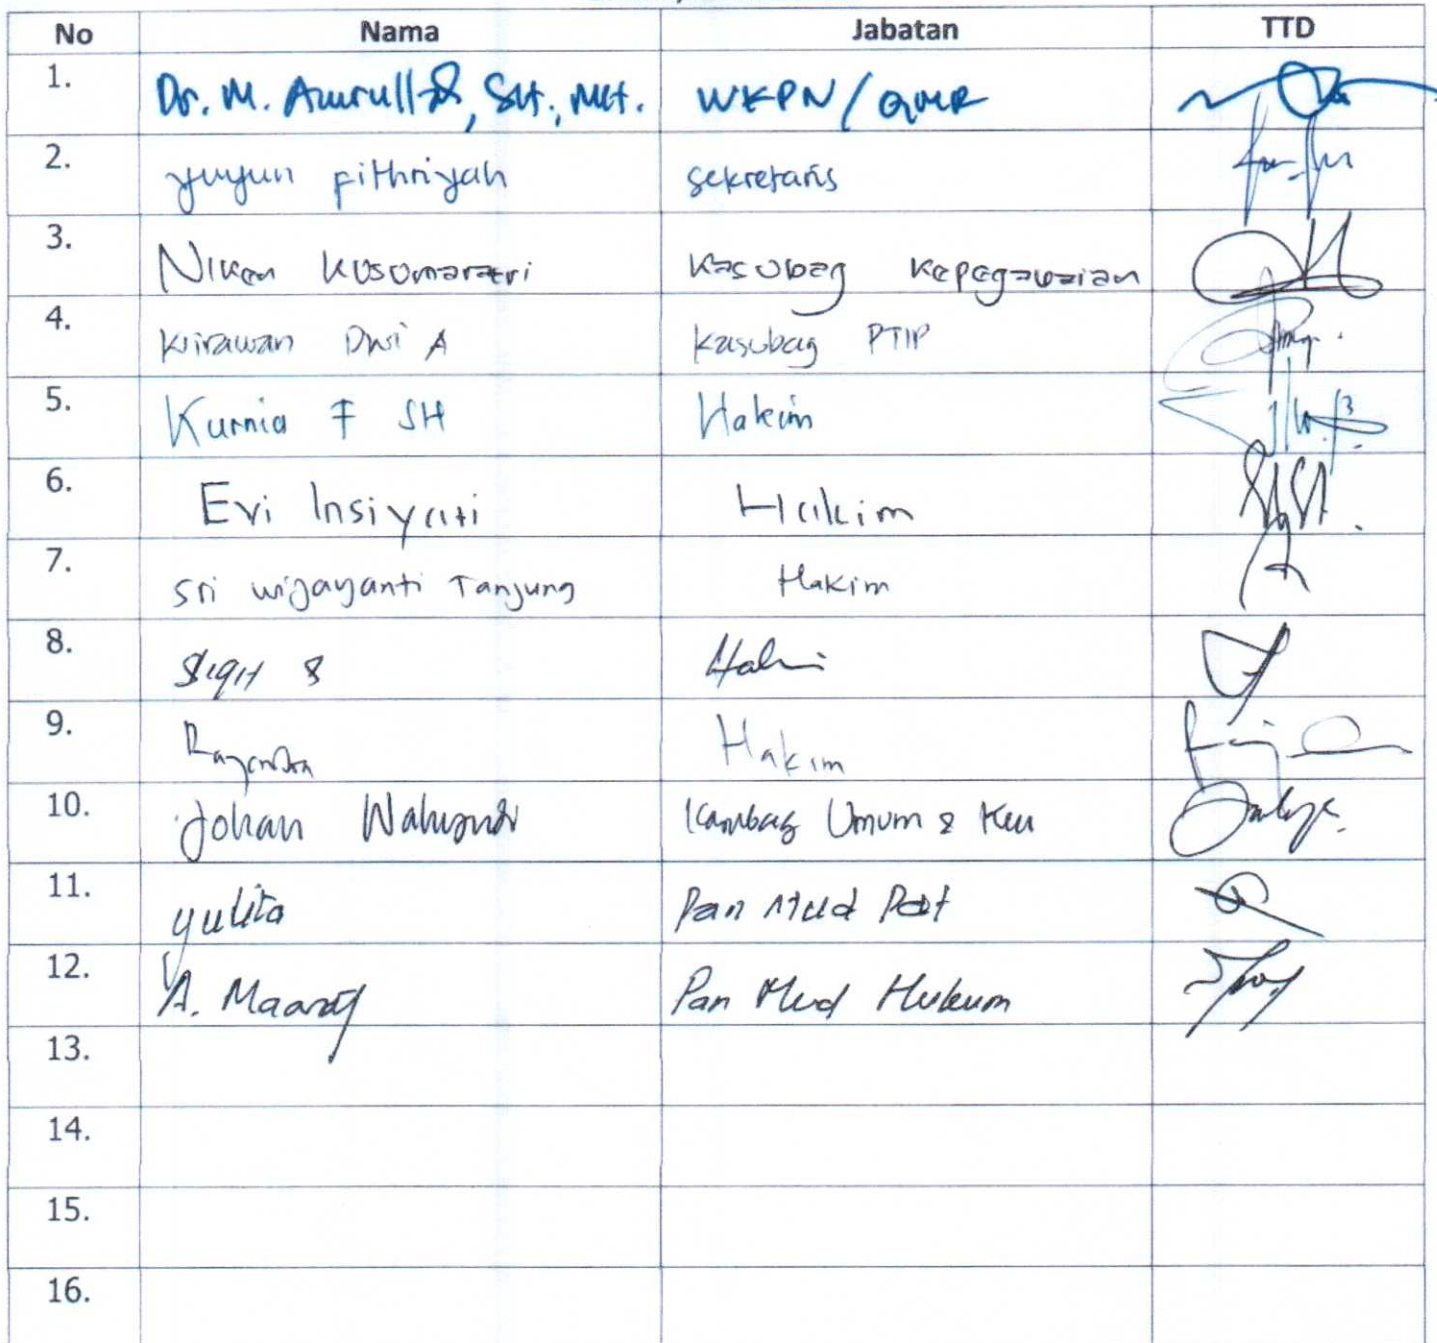 No Nama Jabatan TTD
1. Dr. M. Amrullah, SH., MH. WKPN/QMR
2. yuyun fithriyah sekretaris
3. Niken Kusumaratri Kasubag Kepegawaian
4. Wirawan Dwi A Kasubag PTIP
5. Kurnia F SH Hakim
6. Evi Insiyati Hakim
7. Sri Wijayanti Tanjung Hakim
8. Sigit S Hakim
9. Rajendra Hakim
10. Johan Wahyudi Kasubag Umum & Keu
11. yulita Pan Mud Pdt
12. A. Maarif Pan Mud Hukum
13.
14.
15.
16.